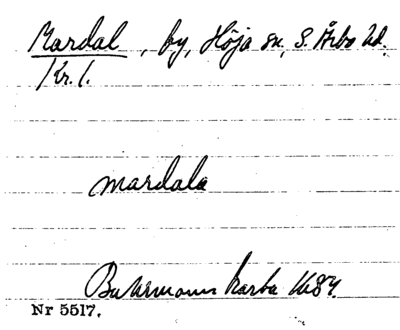 Mardal, by, Höja sn, S. Åsbo hd.
Kr. l.
mardala
Buhrmanns karta 1684.
Nr 5517.